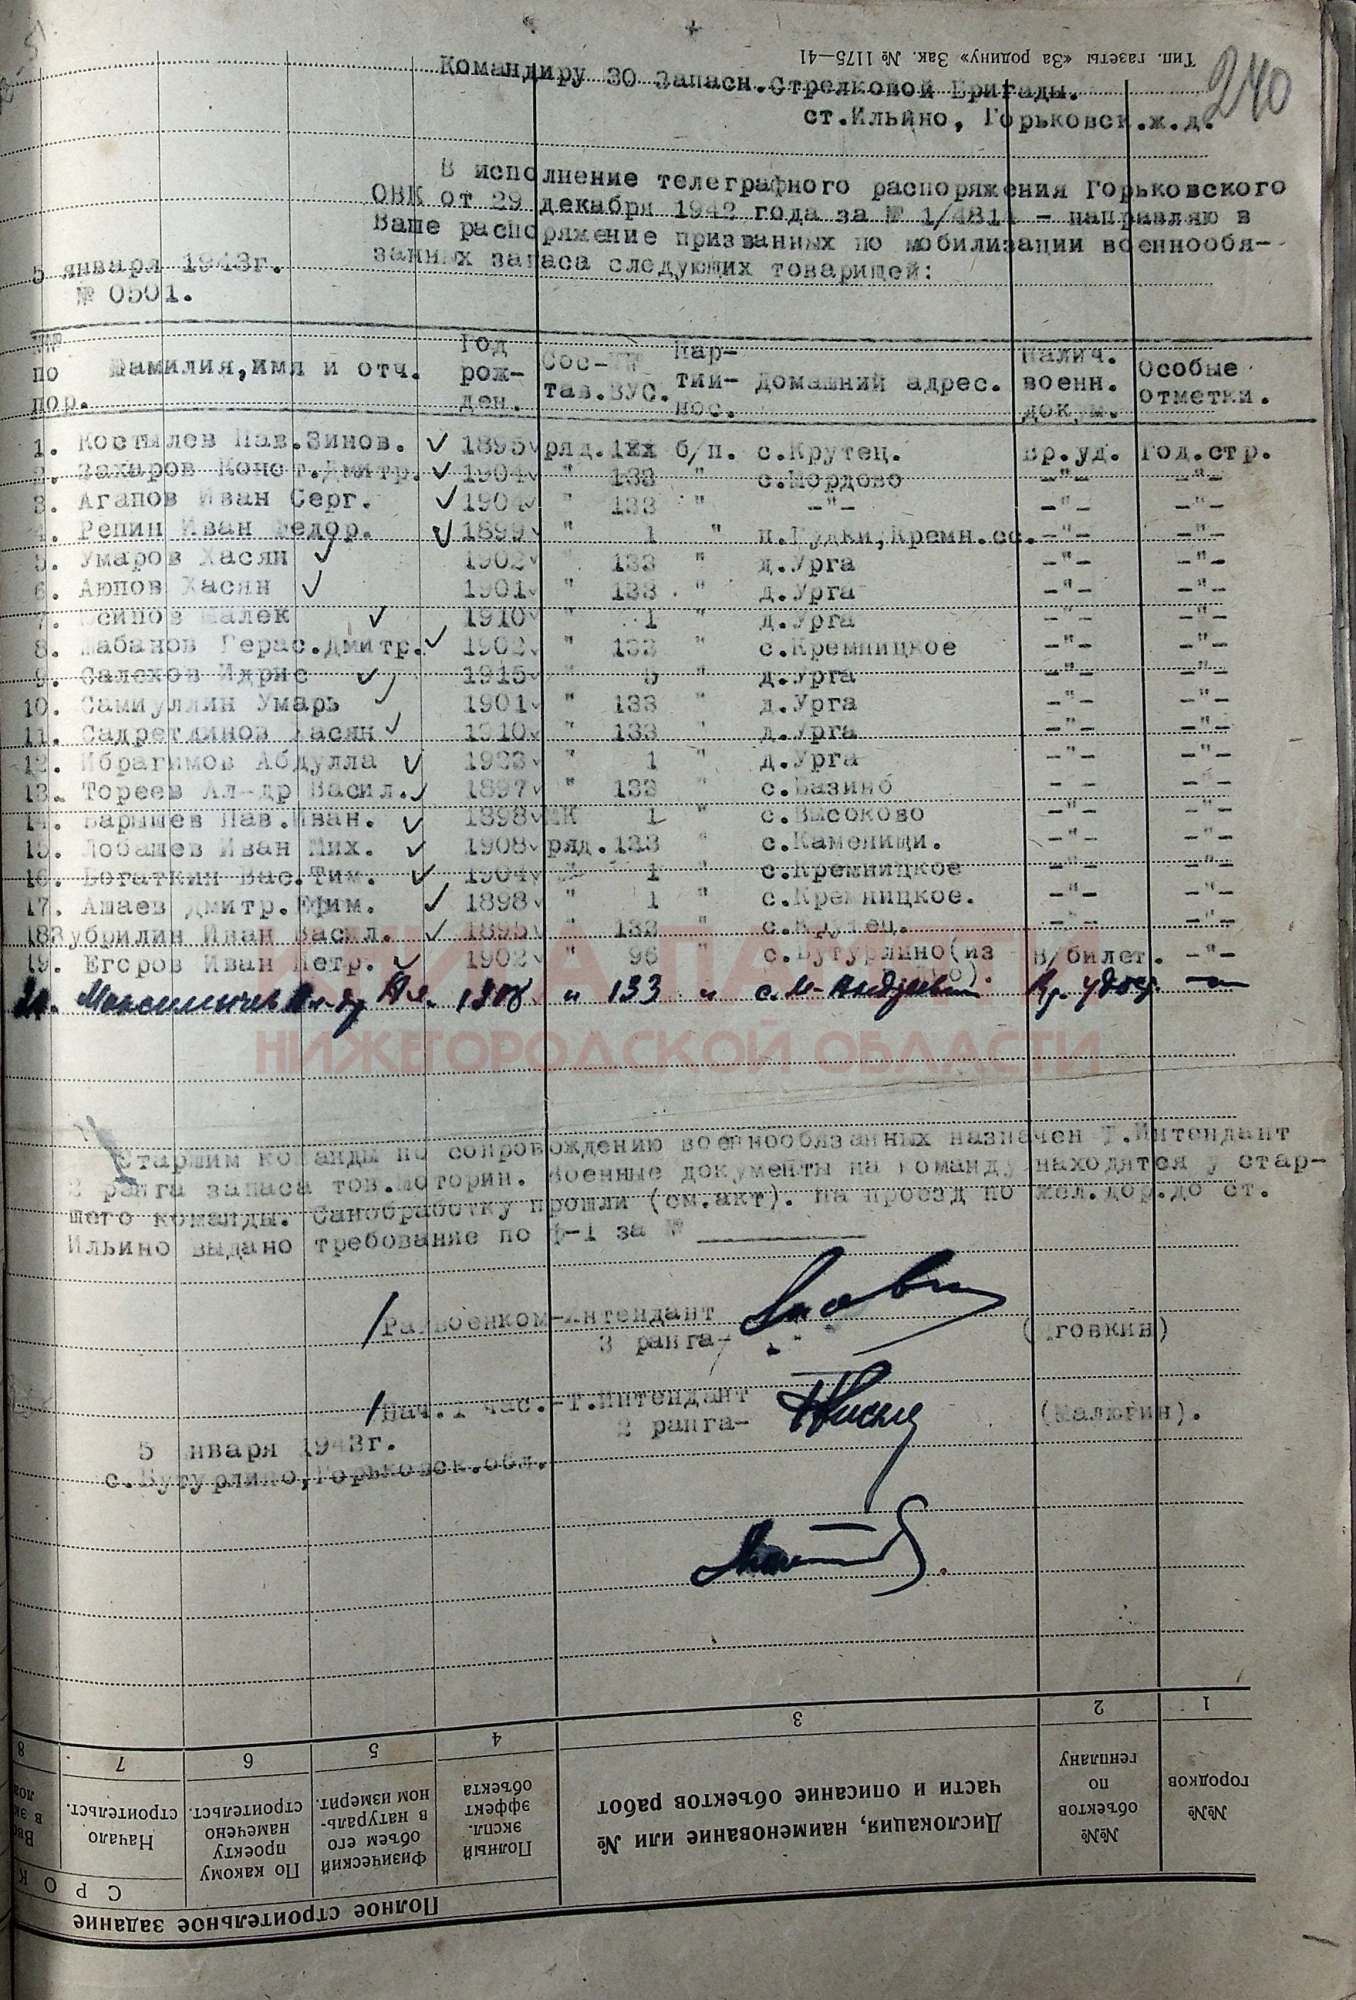 Тип. газеты «За родину» Зак. № 1175—41
240
Командиру 30 Запасн.Стрелковой Бригады.
ст.Ильино, Горьковск.ж.д.
В исполнение телеграфного распоряжения Горьковского
ОВК от 29 декабря 1942 года за № 1/4814 - направляю в
Ваше распоряжение призванных по мобилизации военнообя-
занных запаса следующих товарищей:
5 января 1943г.
№ 0501.
№№ по пор. Фамилия,имя и отч. Год рож-ден. Сос-тав. №№ ВУС. Пар-тий-нос. Домашний адрес. Налич. военн. докум. Особые отметки.
1. Костылев Пав.Зинов. 1895 ряд. 1хх б/п. с.Крутец. Вр.уд. Год.стр.
2. Захаров Конст.Дмитр. 1904 " 133 " с.Мордово -"- -"-
3. Агапов Иван Серг. 1904 " 133 " -"- -"- -"-
4. Репин Иван Федор. 1899 " 1 " п.Гудки,Кремн.сс. -"- -"-
5. Умаров Хасян 1902 133 " д.Урга -"- -"-
6. Аюпов Хасян 1901 " 133 " д.Урга -"- -"-
7. Юсипов Малек 1910 1 " д.Урга -"- -"-
8. Шабанов Герас.Дмитр. 1902 " 133 " с.Кремницкое -"- -"-
9. Салехов Идрис 1915 " 5 " д.Урга -"- -"-
10. Самиуллин Умарь 1901 " 133 " д.Урга -"- -"-
11. Садретдинов Хасян 1910 " 133 " д.Урга -"- -"-
12. Ибрагимов Абдулла 1923 " 1 " д.Урга -"- -"-
13. Тореев Ал-др Васил. 1897 " 133 " с.Базино - - -"-
14. Барышев Пав.Иван. 1898 МК 1 " с.Высоково -"- -"-
15. Лобашев Иван Мих. 1908 ряд. 133 " с.Каменищи. -"- -"-
16. Богаткин Вас.Тим. 1904 1 " с.Кремницкое -"- -"-
17. Ашаев Дмитр.Ефим. 1898 " 1 " с.Кремницкое. -"- -"-
18 Зубрилин Иван Васил. 1895 " 132 " с.Крутец. -"- -"-
19. Егоров Иван Петр. 1902 " 96 " с.Бутурлино(из В/билет. -"-
20. 1908 " 133 " Вр. удост. -"-
КНИГА ПАМЯТИ
НИЖЕГОРОДСКОЙ ОБЛАСТИ
Старшим команды по сопровождению военнообязанных назначен Т.Интендант
2 ранга запаса тов.Моторин. Военные документы на команду находятся у стар-
шего команды. Санобработку прошли (см.акт). На проезд по жел.дор.до ст.
Ильино выдано требование по ф-1 за № ________
/Райвоенком-Интендант
3 ранга-
/Нач.1 час.-Т.Интендант
2 ранга- (Малюгин).
5 января 1943г.
с.Бутурлино,Горьковск.обл.
1 2 3 4 5 6 7 8
№№ городков
№№ объектов по генплану
Дислокация, наименование или № части и описание объектов работ
Полный экспл. эффект объекта
Физический объем его в натураль- ном измерит.
По какому проекту намечено строительст.
Начало строительст.
СРОК
Полное строительное задание